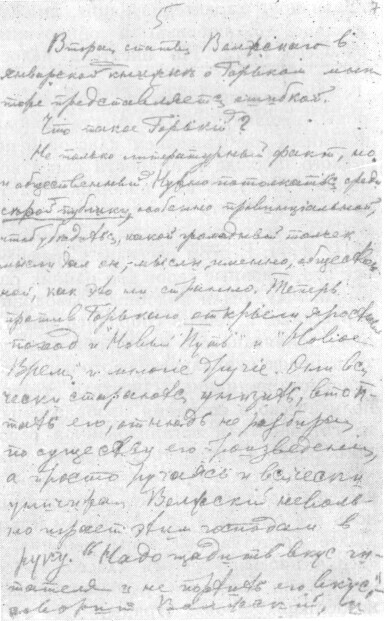 5
7
Вторая статья Волжскаго в
январской книжке о Горьком мне
тоже представляется ошибкой.
Что такое Горькій?
Не только литературный факт, но
и общественный. Нужно потолкаться среди
серой публики, особенно провинціальной,
чтоб убедиться, какой громадный толчек
мысли дал он, – мысли, именно, обществен
ной, как это ни странно. Теперь
против Горькаго открыли яростный
поход и "Новый Путь" и "Новое
Время" и многіе другіе. Они вся
чески стараются унизить, втоп-
тать его, отнюдь не разбирая
по существу его произведеній,
а просто ругаясь и всячески
уничижая. Волжский неволь-
но играет этим господам в
руку. "Надо щадить вкус чи-
тателя и не портить его вкус,"
говорит Волжский, и